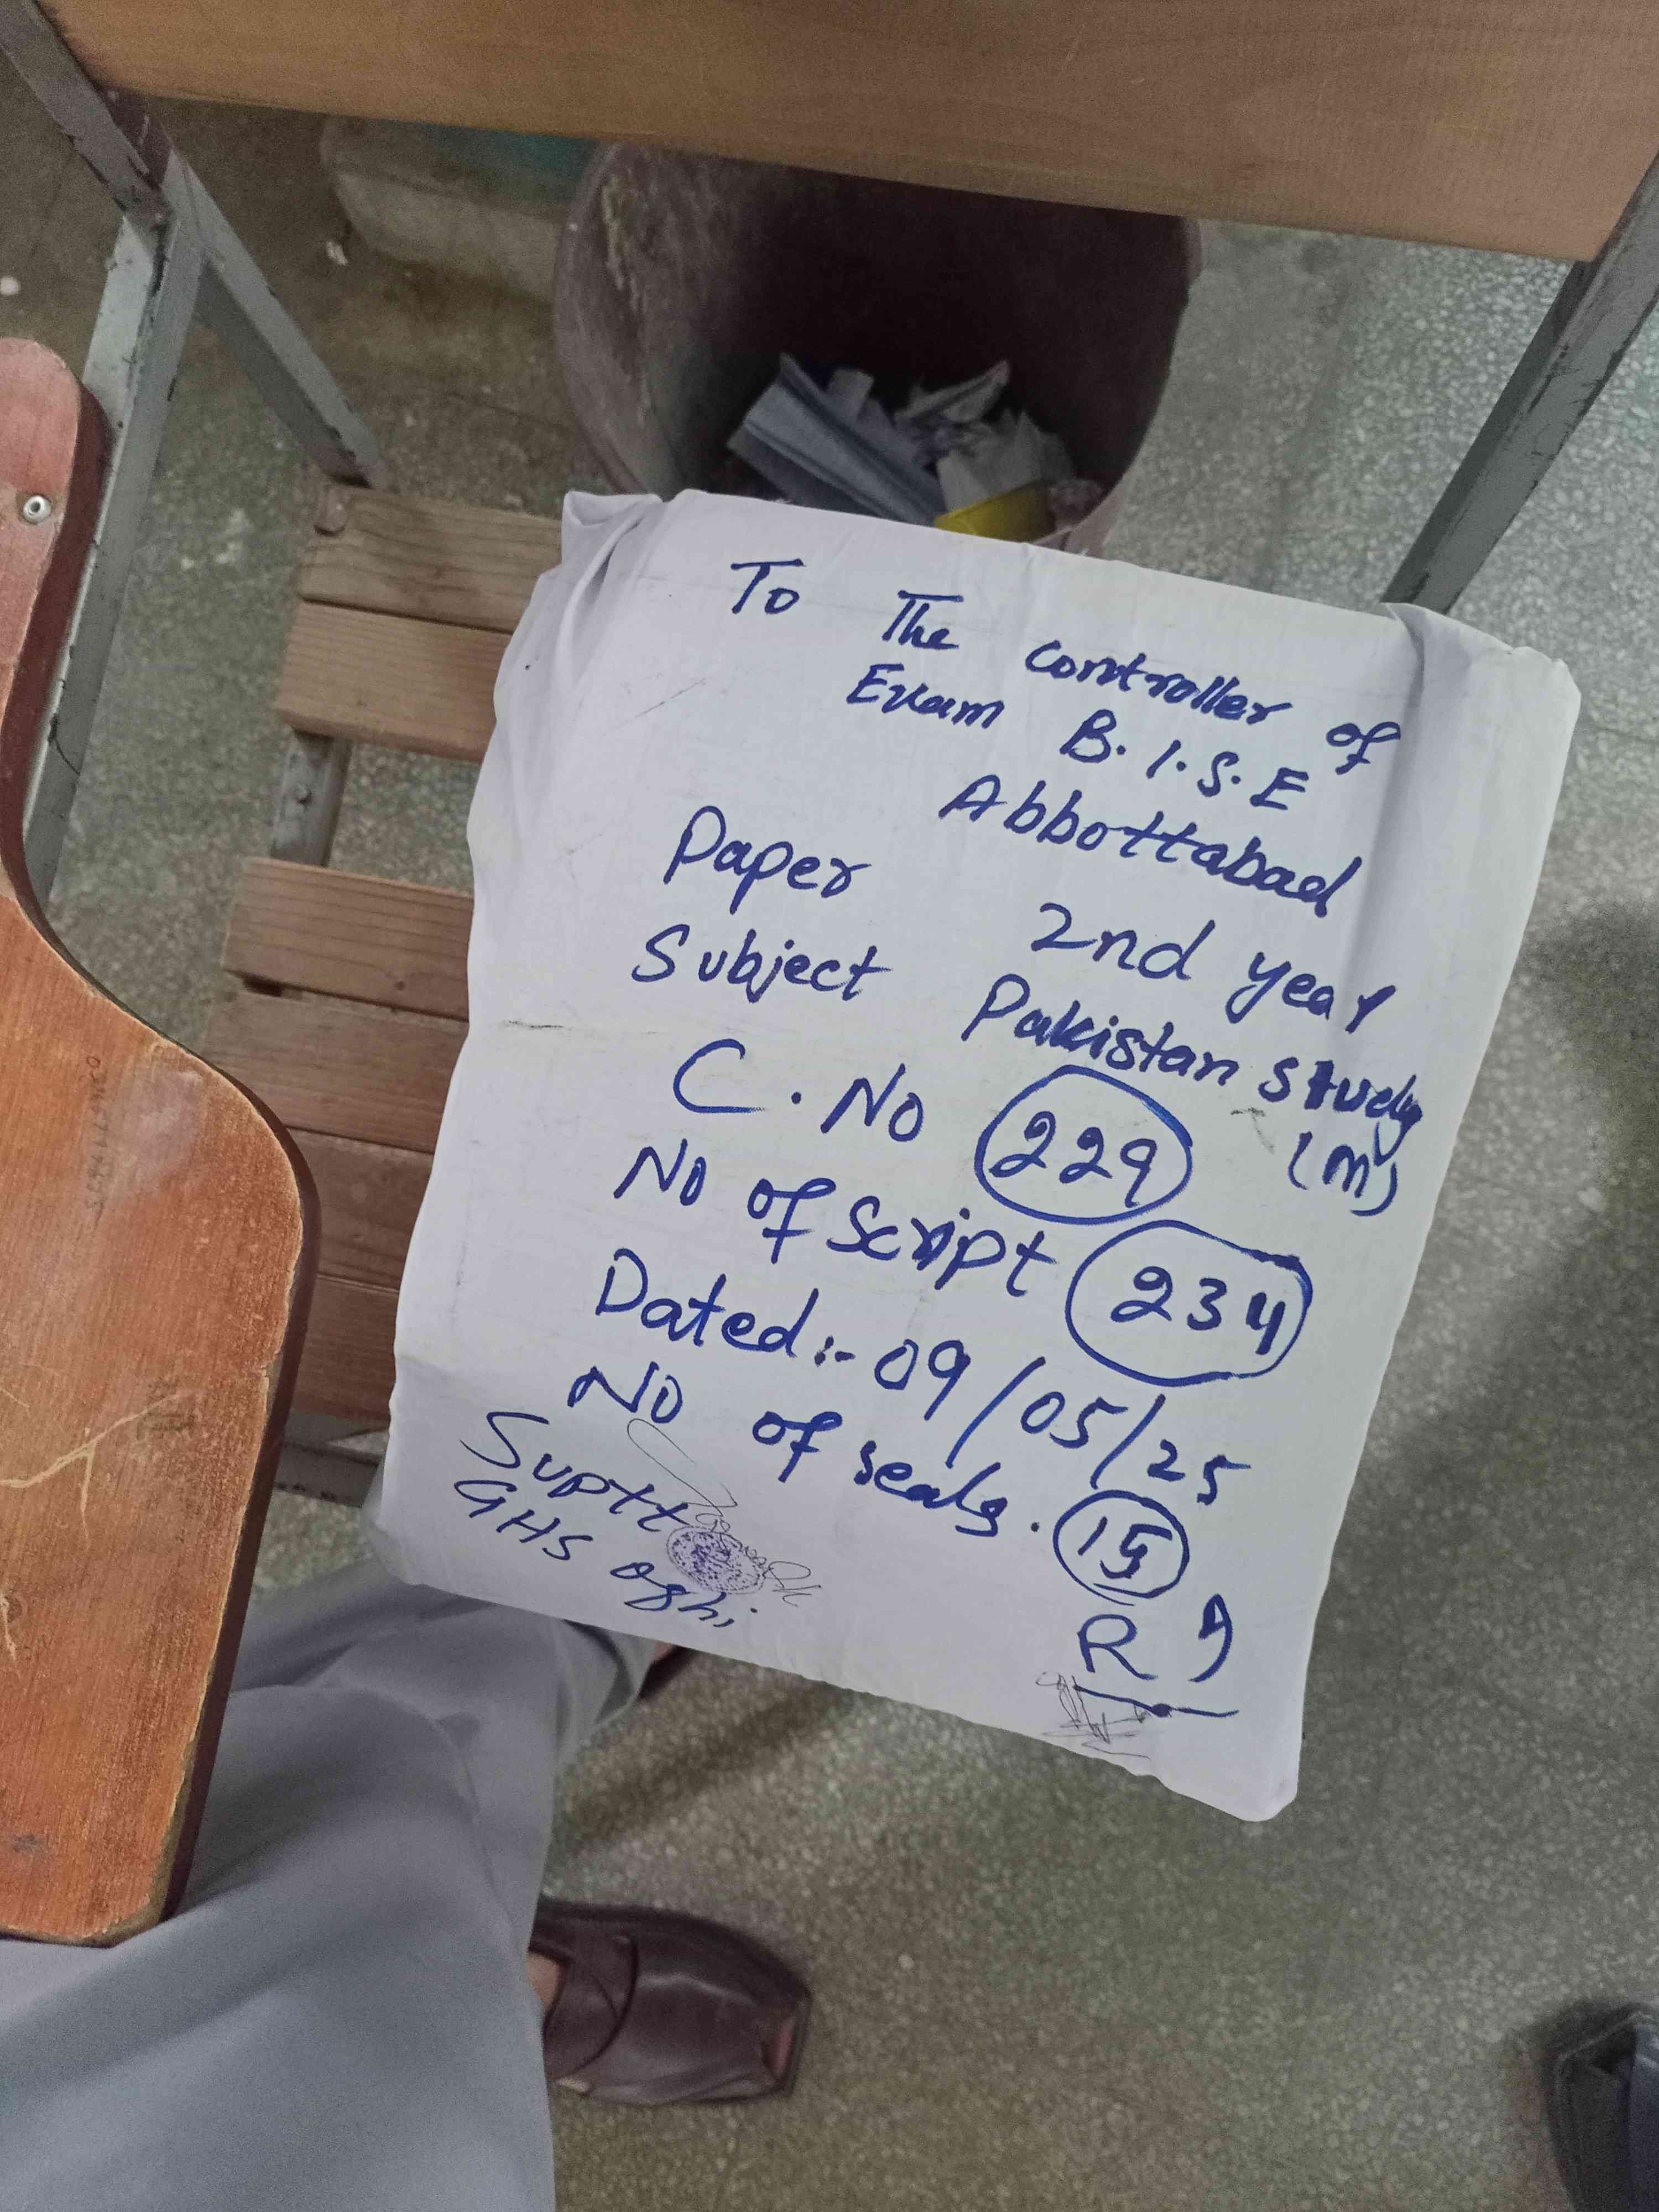 To The controller of
Exam B.I.S.E
Abbottabad
Paper 2nd year
Subject Pakistan study
(M)
C. No 229
No of script 234
Dated:- 09/05/25
No of seals. 15
Suptt
GHS oghi
R I